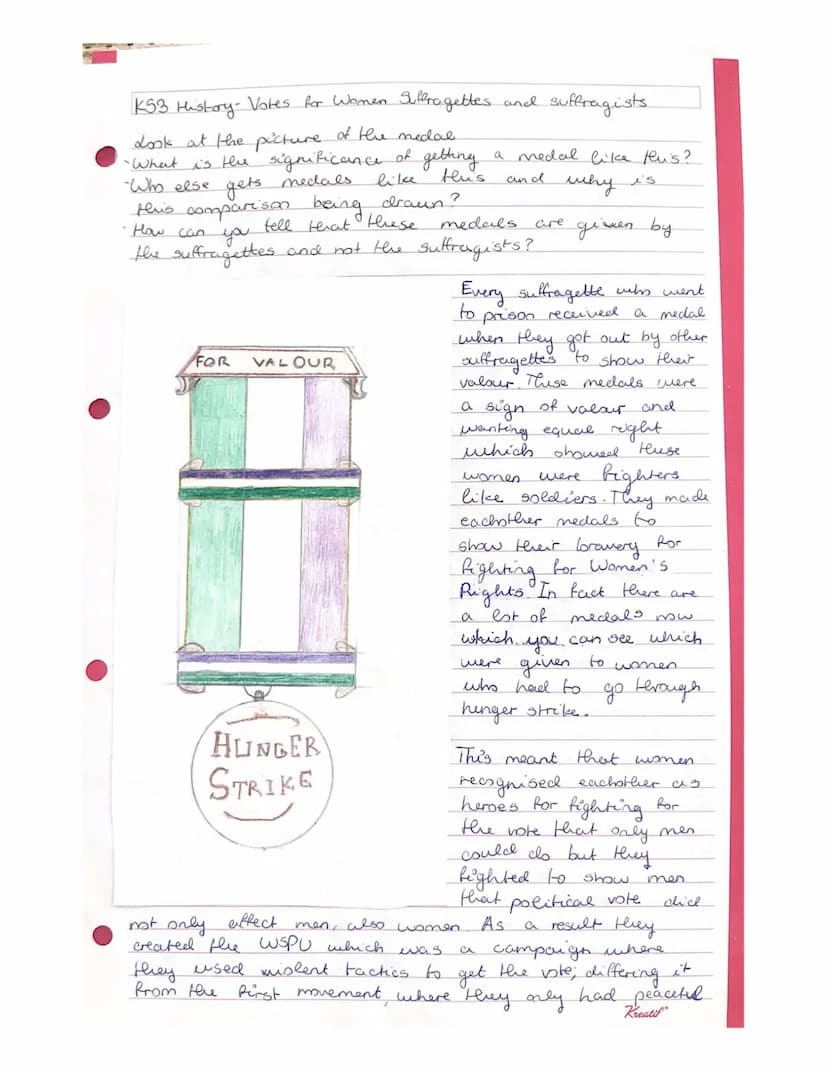 KS3 History- Votes for Women Suffragettes and suffragists
Look at the picture of the medal
- What is the significance of getting a medal like this?
- Who else gets medals like this and why is
this comparison being drawn?
· How can you tell that these medals are given by
the suffragettes and not the suffragists?
Every suffragette who went
to prison received a medal
when they got out by other
suffragettes to show their
valour. These medals were
a sign of valour and
wanting equal right
which showed these
women were fighters
like soldiers. They made
eachother medals to
show their bravery for
fighting for Women's
Rights. In fact there are
a lot of medals now
which you can see which
were given to women
who had to go through
hunger strike.
FOR VALOUR
HUNGER
STRIKE
This meant that women
recognised eachother as
heroes for fighting for
the vote that only men
could do but they
fighted to show men
that political vote did
not only effect men, also women. As a result they
created the WSPU which was a campaign where
they used violent tactics to get the vote; differing it
from the first movement, where they only had peaceful
Kreatif